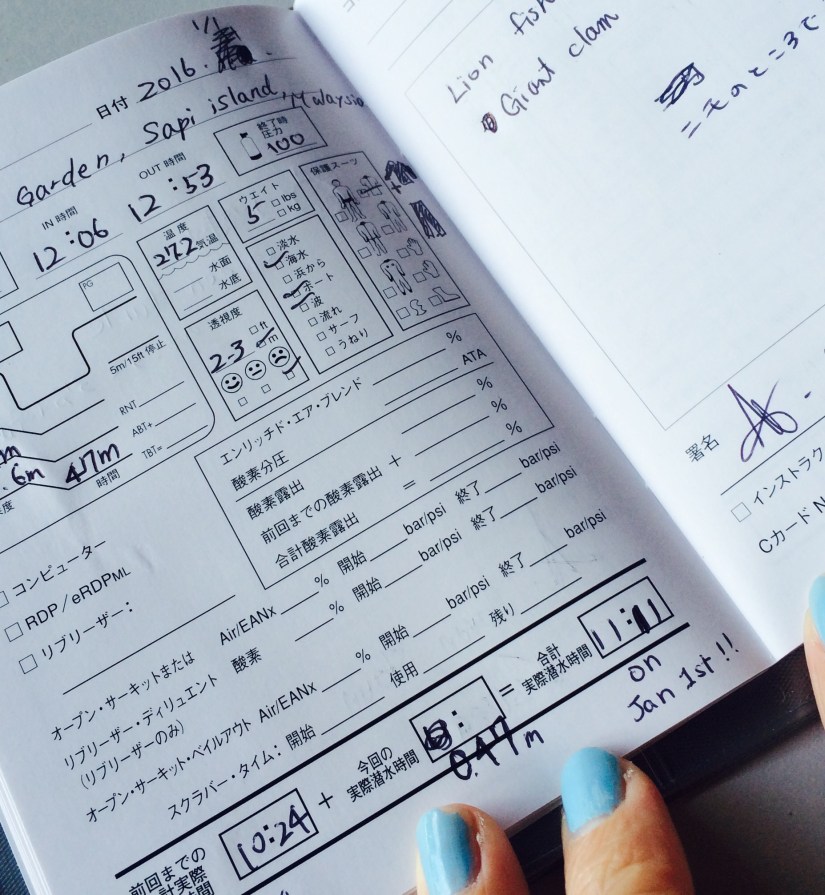 1/1
日付 2016.
Garden, Sapi island, Malaysia
IN 時間 12:06
OUT 時間 12:53
終了時圧力
100
温度
27.2 気温
水面
水底
ウエイト
5 □ lbs
□ kg
保護スーツ
□ 淡水
□ 海水
□ 浜から
□ ボート
□ 波
□ 流れ
□ サーフ
□ うねり
透視度
2-3 □ ft
m
PG
5m/15ft 停止
RNT
ABT+
TBT=
m
.6m 47m
時間
エンリッチド・エア・ブレンド %
酸素分圧 ATA
酸素露出 %
前回までの酸素露出 + %
合計酸素露出 = %
□ コンピューター
□ RDP/eRDPML
□ リブリーザー:
オープン・サーキットまたは Air/EANx % 開始 bar/psi 終了 bar/psi
リブリーザー・ディリュエント 酸素 % 開始 bar/psi 終了 bar/psi
(リブリーザーのみ)
オープン・サーキット・ベイルアウト Air/EANx % 開始 bar/psi 終了 bar/psi
スクラバー・タイム: 開始 使用 残り
前回までの
10:24
+
今回の
実際潜水時間
:
0.47m
=
合計
実際潜水時間
11:11
on
Jan 1st!!
Lion fish
Giant clam
ニモのところで
署名
□ インストラク
Cカード N